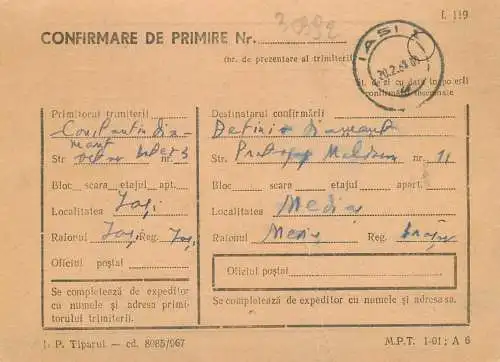 I. 119
3.992
CONFIRMARE DE PRIMIRE Nr.
(nr. de prezentare al trimiterii)
IAȘI 1
20.2.69.09
St. de zi cu data înapoierii
confirmării
Primitorul trimiterii
Constantin Dia-
mant
Str. nr.
Bloc scara etajul apt.
Localitatea Iași
Raionul Iași Reg. Iași
Oficiul poștal
Se completează de expeditor
cu numele și adresa primi-
torului trimiterii.
Destinatarul confirmării
Diamant
Str. Protopop Moldovan nr. 11
Bloc scara etajul apart.
Localitatea Mediaș
Raionul Mediaș Reg. Brașov
Oficiul poștal
Se completează de expeditor cu numele și adresa sa.
I. P. Tiparul — cd. 8085/967
M.P.T. 1-01; A 6